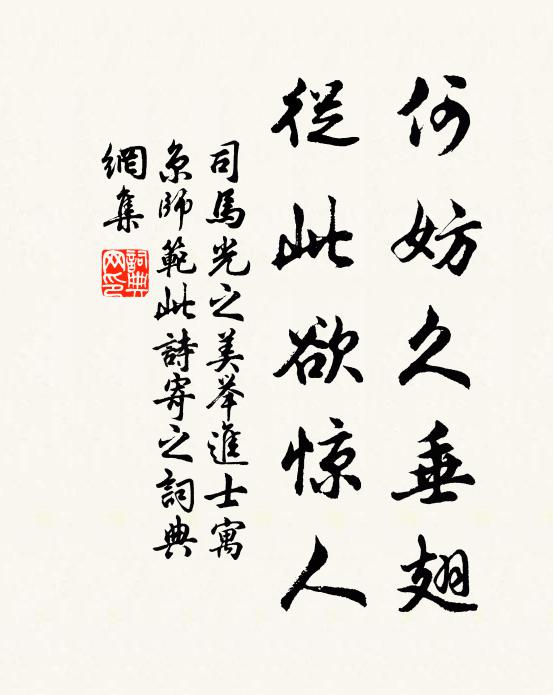 何妨久垂翅
從此欲惊人
司馬光之美举進士寓
京師範此詩寄之詞典
網集
詞典网印